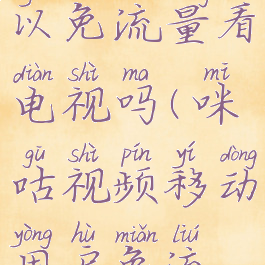 以免流量看
diàn shì ma mī
电视吗(咪
gū shì pín yí dòng
咕视频移动
yòng hù miǎn liú
用户免流